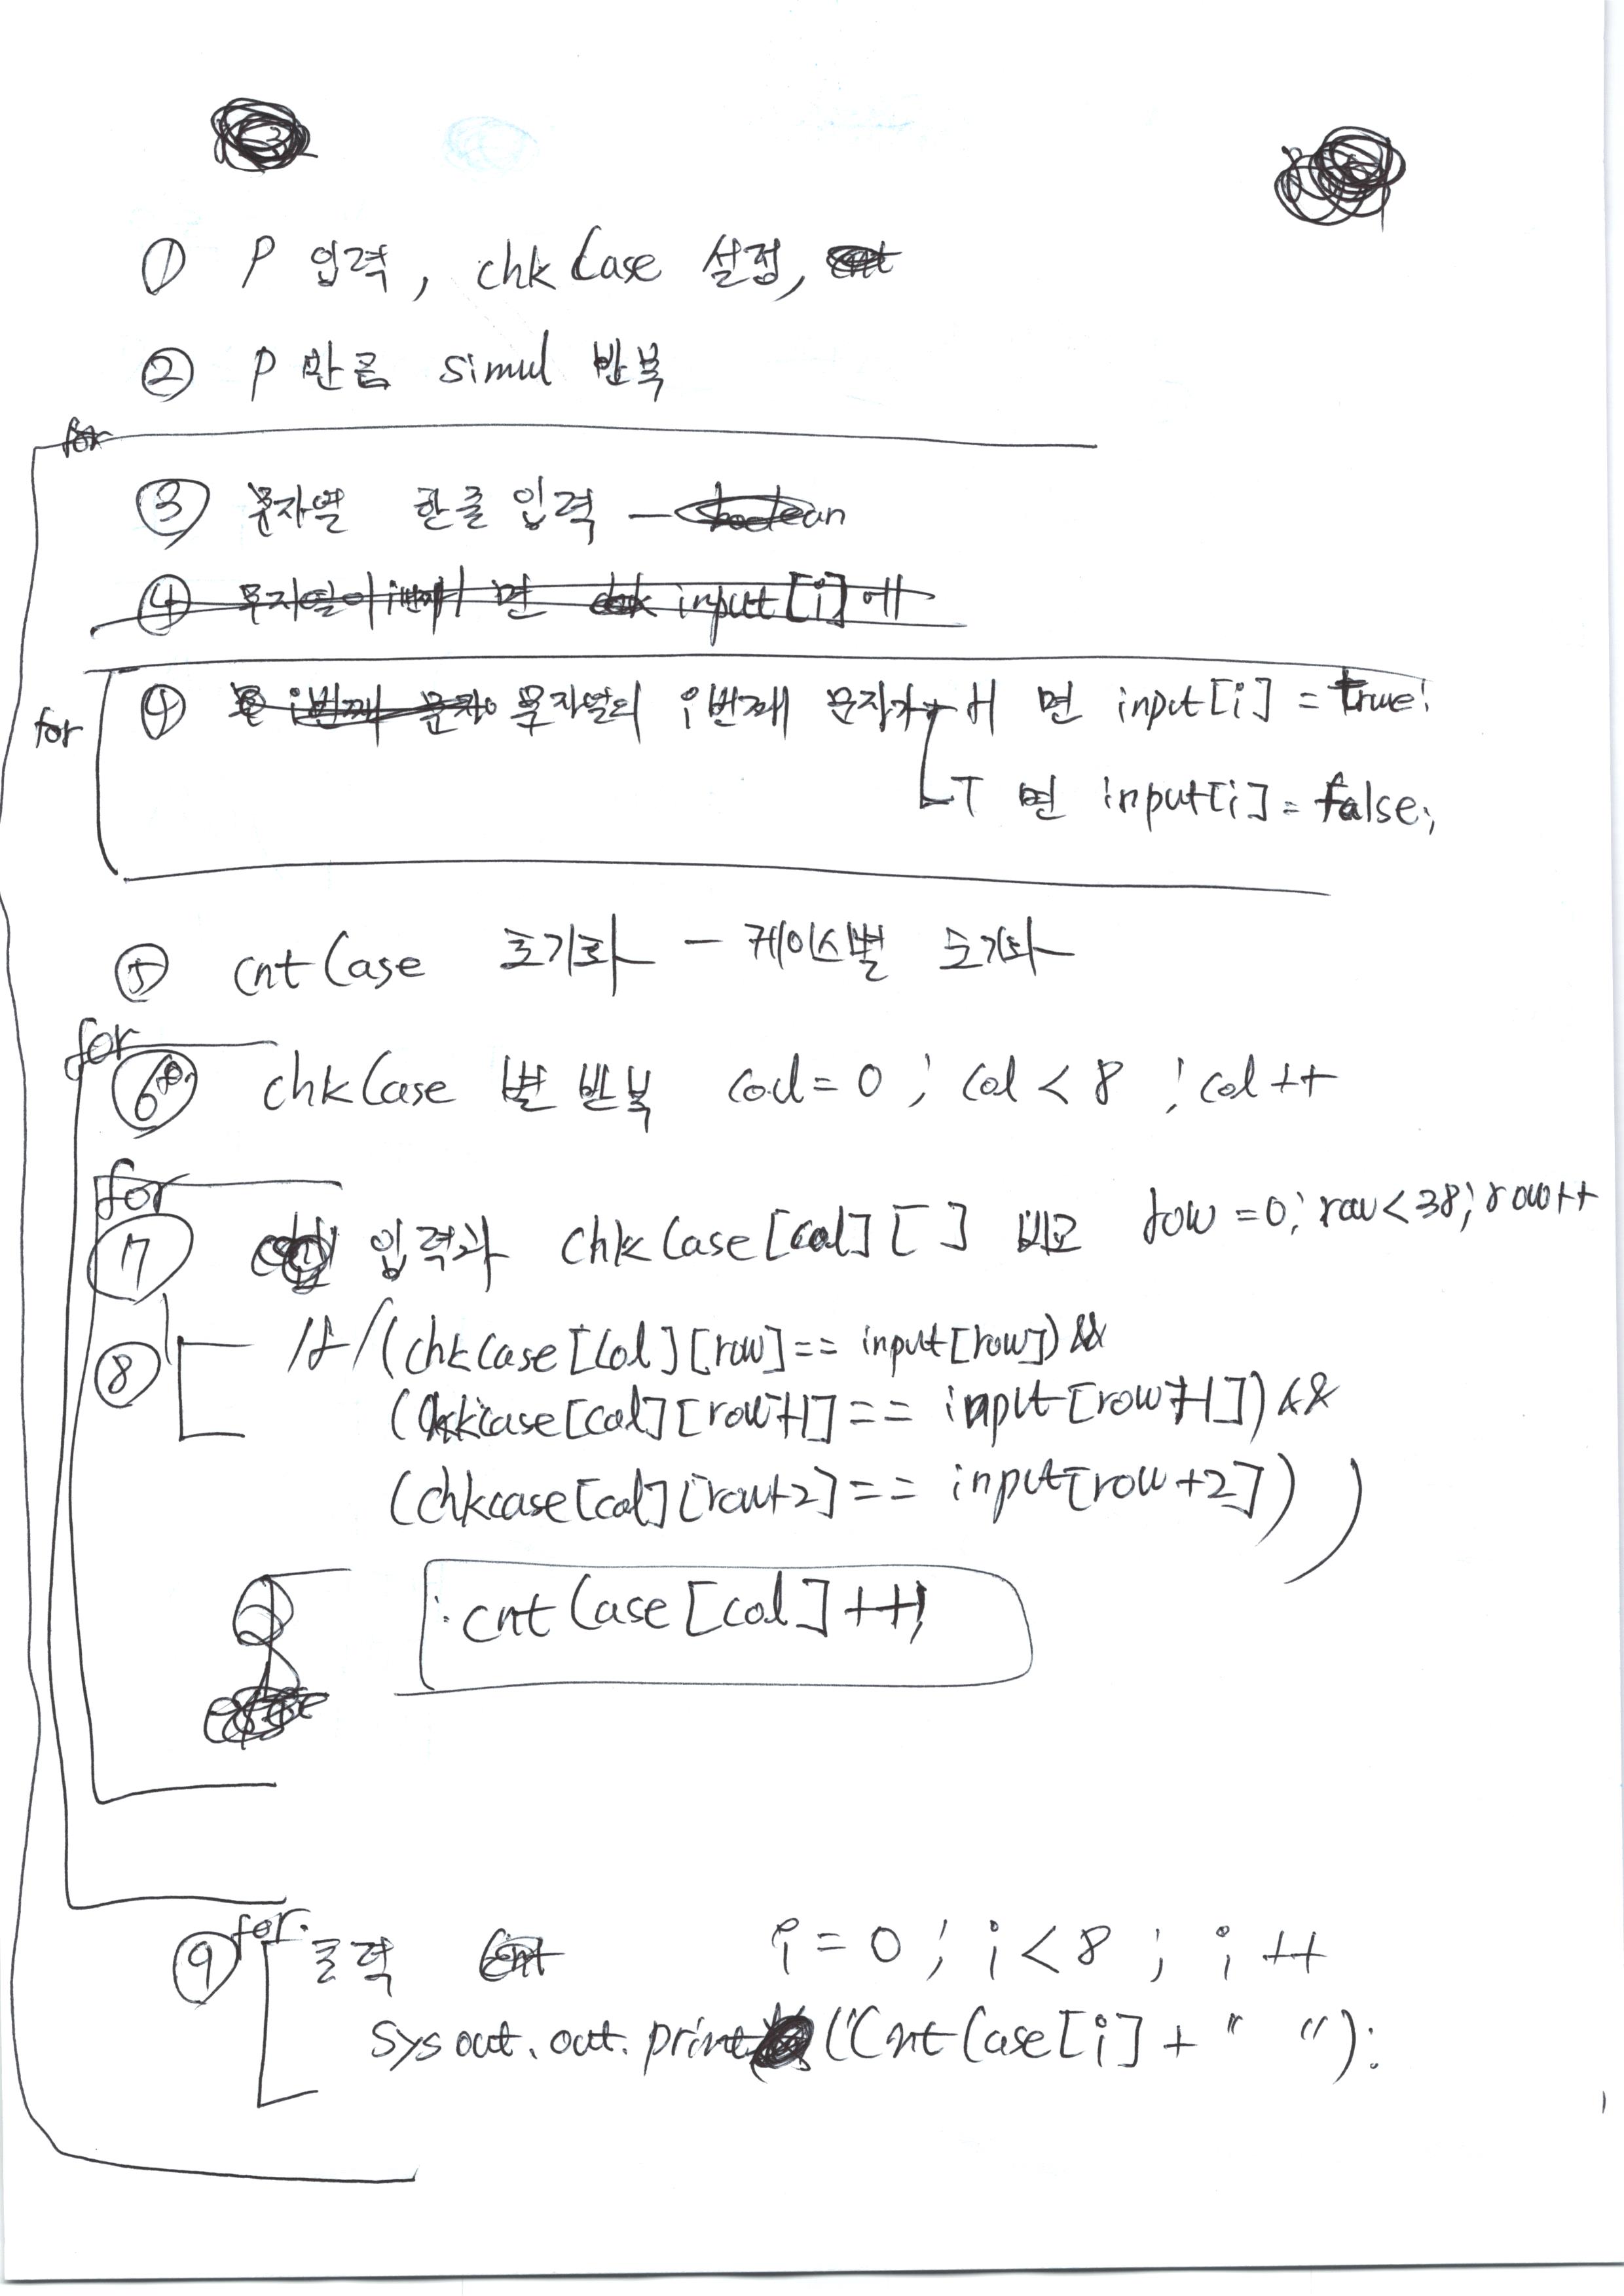 ① P 입력, chkCase 설정,
② P 만큼 simul 반복
for
③ 문자열 한줄 입력 — boolean
④ 문자열이 i번째 면 input[i]에
for
④ i번째 문자 문자열의 i번째 문자가 H 면 input[i] = true;
T 면 input[i] = false;
⑤ cntCase 초기화 — 케이스별 초기화
for
⑥ chkCase 별 반복 col = 0 ; col < 8 ; col ++
for
⑦ 입력과 chkCase[col][ ] 비교 row = 0; row < 38; row++
⑧ if (chkCase[col][row] == input[row]) &&
(chkcase[col][row+1] == input[row+1]) &&
(chkcase[col][row+2] == input[row+2]))
cntCase[col]++;
for
⑨ 출력 cnt i = 0 ; i < 8 ; i ++
sysout.out.print (CntCase[i] + " ");